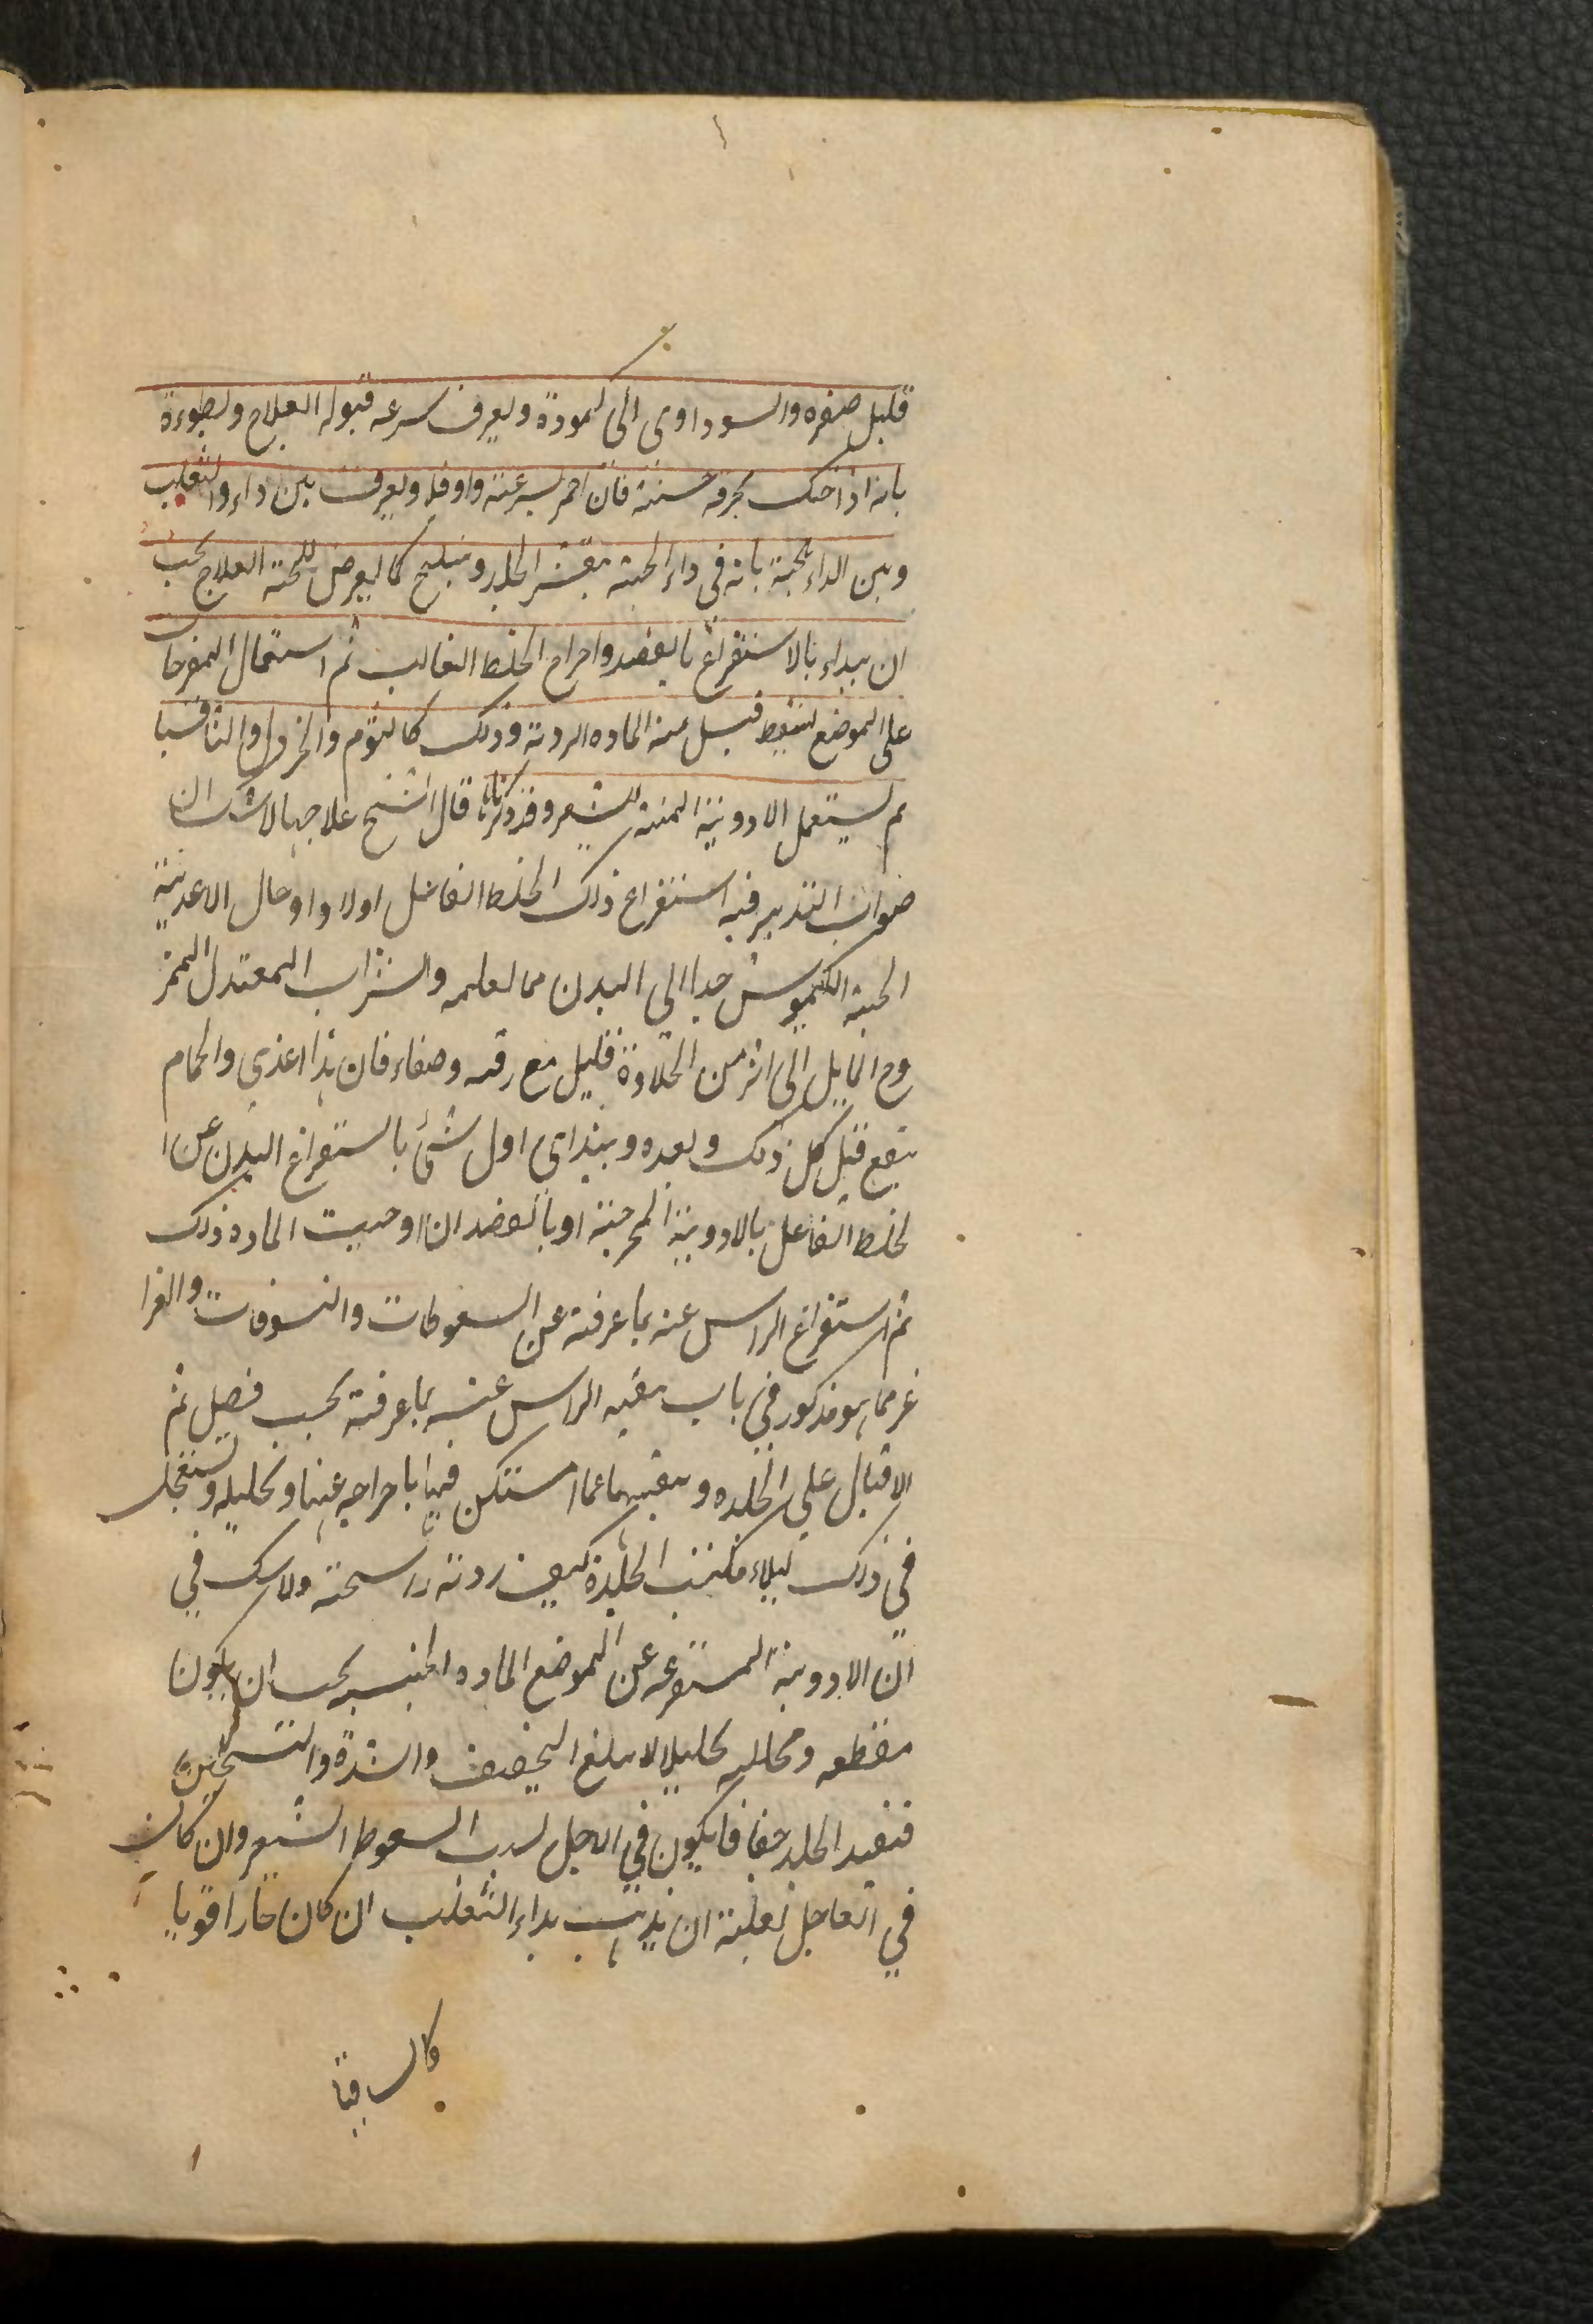 قليل صفره والسوداوى الى كموده ويعرف سرعه قبوله العلاج وبطوءه
بانه اذا حك بخرقه خشنة فان احمر بسرعة واوفلا ويعرف بين داء والثعلب
وبين الداء الحية بانه فى داء الحية يقشر الجلد وينسلخ كما يعرض للحية العلاج يجب
ان يبداء بالاستفراغ بالفصد واخراج الخلط الغالب ثم استعمال المقرحات
على الموضع لينفط فيسل منه الماده الرديه وذلك كالثوم والخردل والثافسيا
ثم يستعمل الادوية المنبته للشعر وقد ذكرناها قال الشيخ علاجها لا شك ان
صواب التدبير فيه استفراغ ذلك الخلط الفاعل اولا واوحال الاغدية
الحسنة الكيموس جدا الى البدن مما تعلمه والشراب المعتدل الممز
وج المايل الى اثر من الحلاوة قليل مع رقه وصفاء فان هذا اغذى والحمام
ينفع قبل كل ذلك وبعده ويبتداى اول شئ باستفراغ البدن عن ا
لخلط الفاعل بالادوية المخرجة او بالفصد ان اوجبت الماده ذلك
ثم استفراغ الراس عنه بما عرفته عن السعوطات والنشوقات والغرا
غر مما هو مذكور في باب تنقيه الراس عنه بما عرفته بحسب فصل ثم
الاقبال على الجلده وتنقيتها عما استكن فيها باخراجه عنها وتحليله وتستعجل
في ذلك ليلاء فكتسب الجلدة كيف رديه راسخة ولا شك في
ان الادوية المستفرغه عن الموضع الماده الحتبسه يجب ان يكون
مقطعه ومحلله تحليلا لا يبلغ التجفيف والشدة والتسخين
فتفيد الجلد جفافا يكون في الاجل لسبب السعوط الشعر وان كان
في العاجل نغلبة ان يذهب بداء الثعلب ان كان حارا قويا
كالسافيا